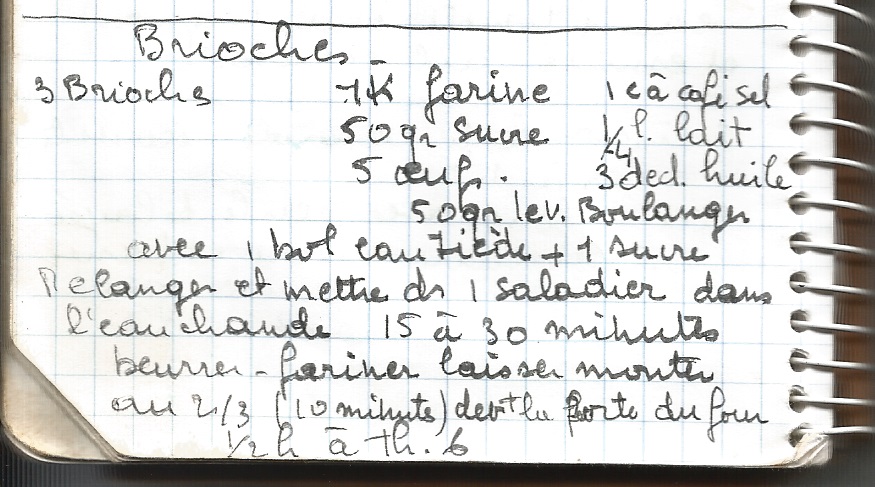 Brioches
3 Brioches 1K farine 1 c à café sel
50 gr sucre 1/4 l. lait
5 œufs. 3 ded. huile
50 gr lev. Boulanger
avec 1 bol eau tiède + 1 sucre
Mélanger et mettre ds 1 saladier dans
l'eau chaude 15 à 30 minutes
beurrer - fariner laisser monter
au 2/3 (10 minutes) devt la porte du four
1/2 h à th. 6